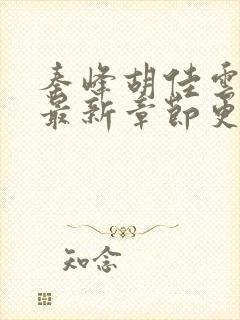 秦峰胡佳雲
最新章節更
知念